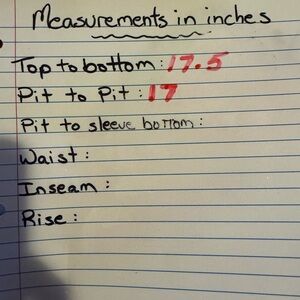 Measurements in inches
Top to bottom: 17.5
Pit to Pit: 17
Pit to sleeve bottom:
Waist:
Inseam:
Rise: